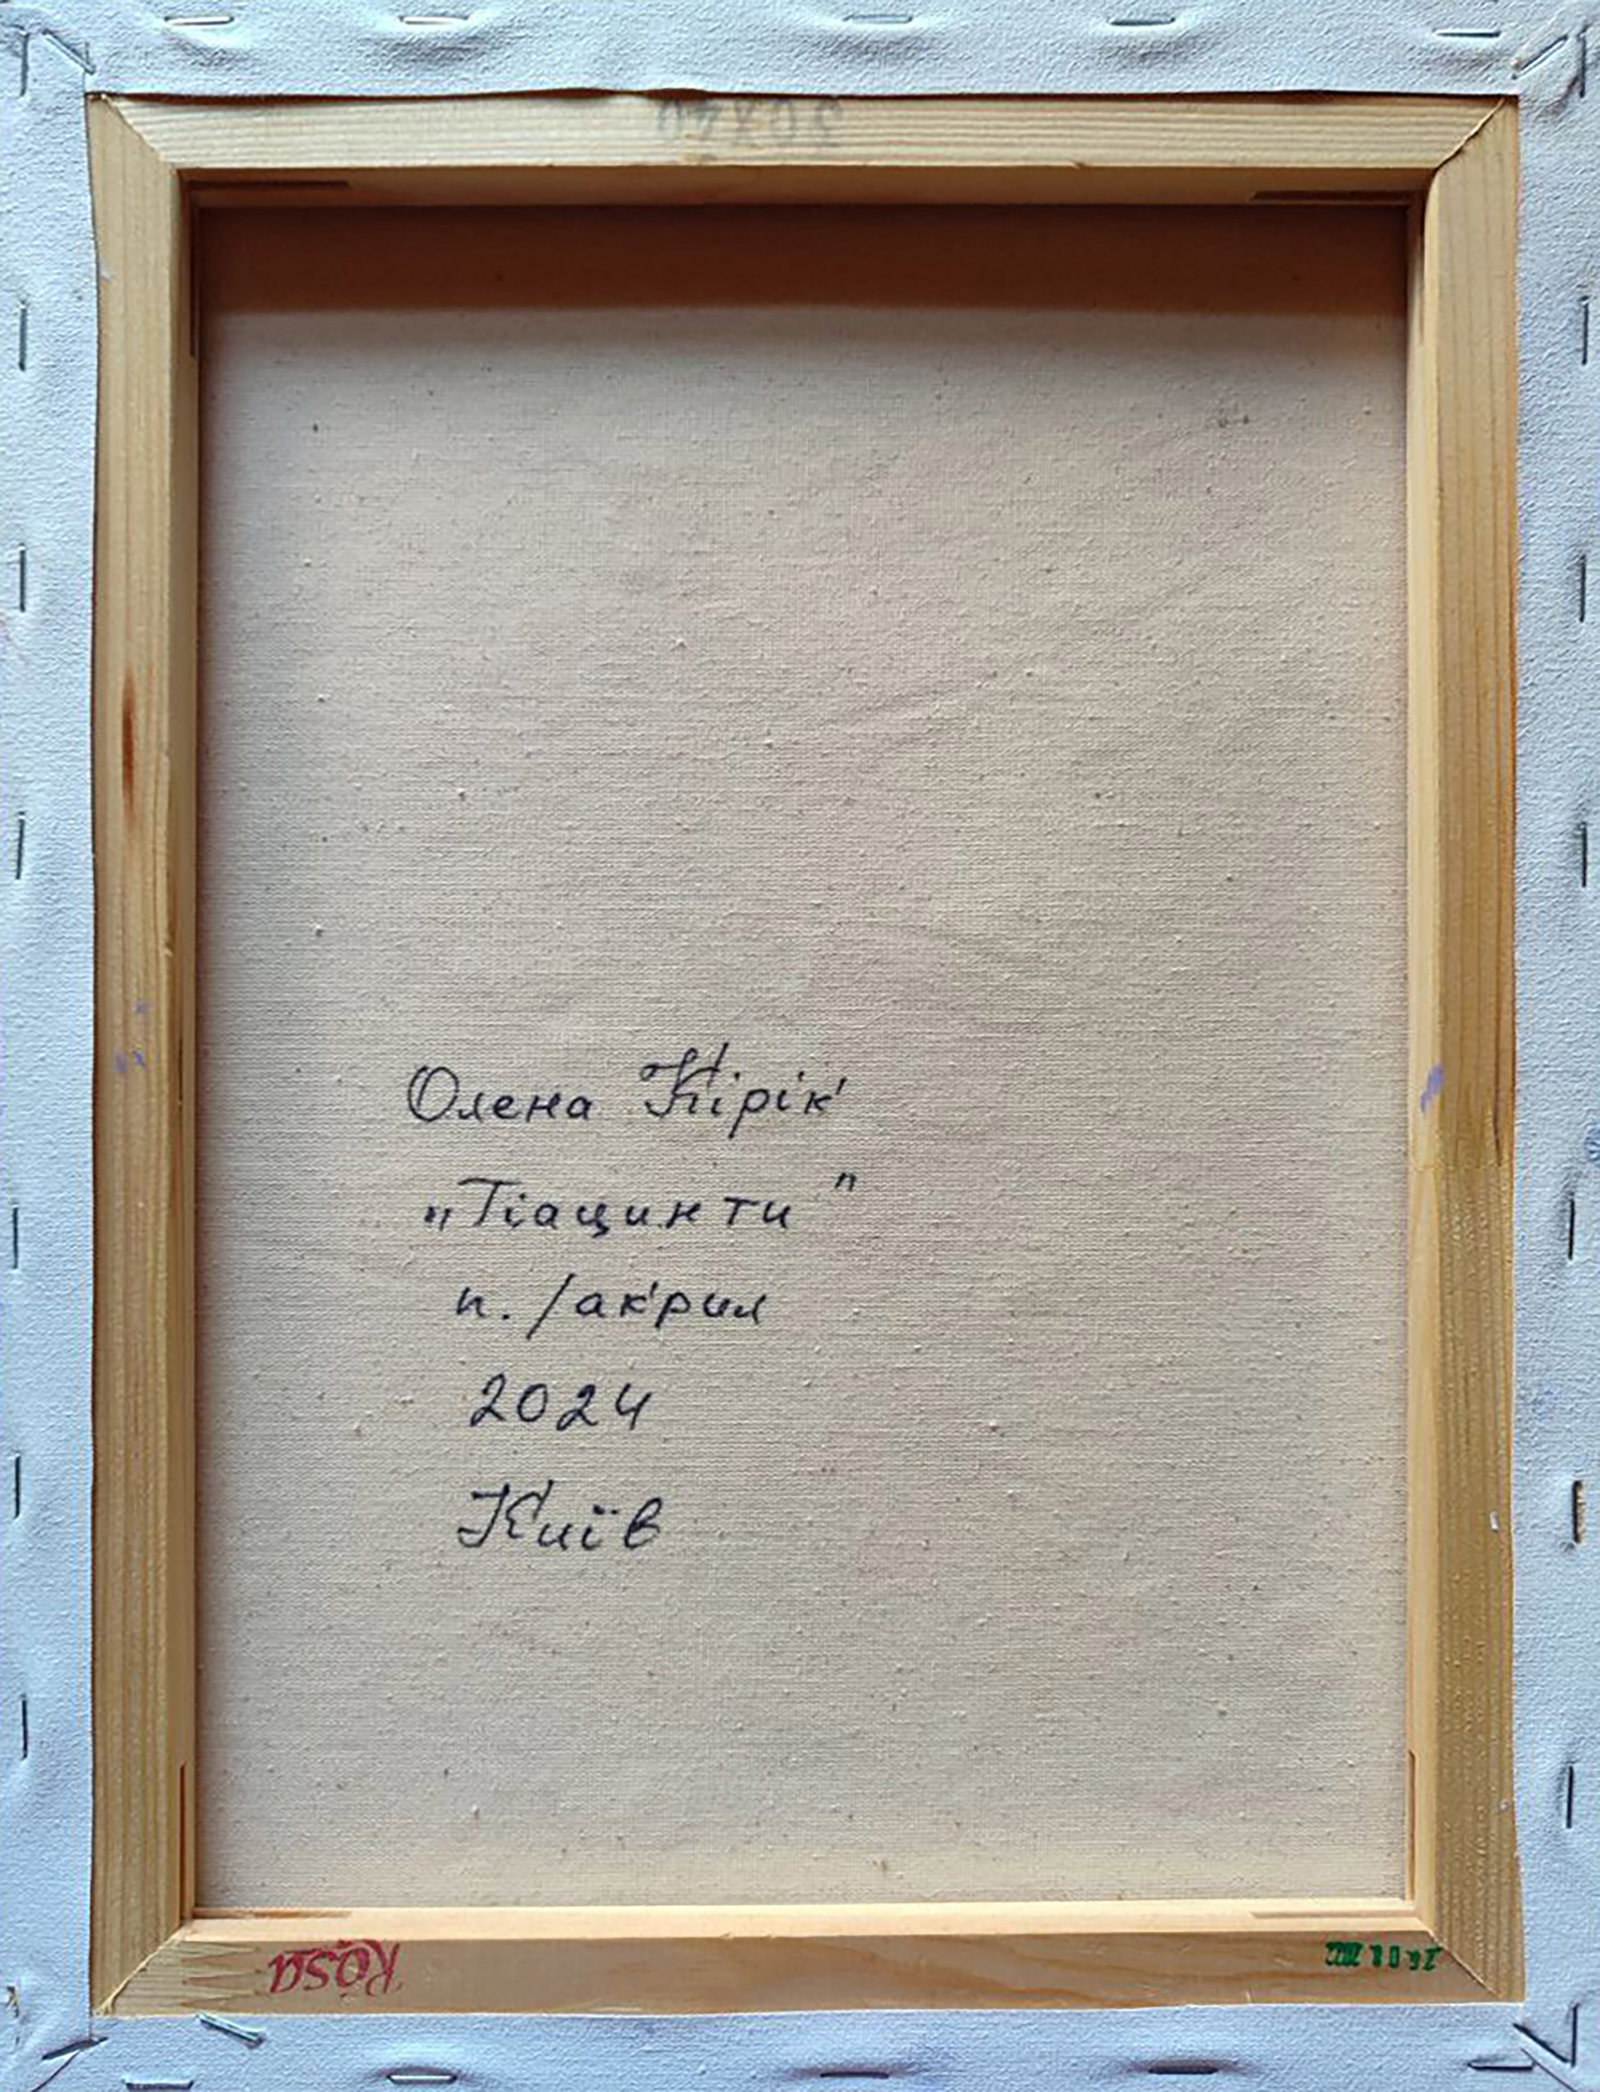 30х40
Олена Кірік
„Гіацинти"
п./акрил
2024
Київ
Rosa